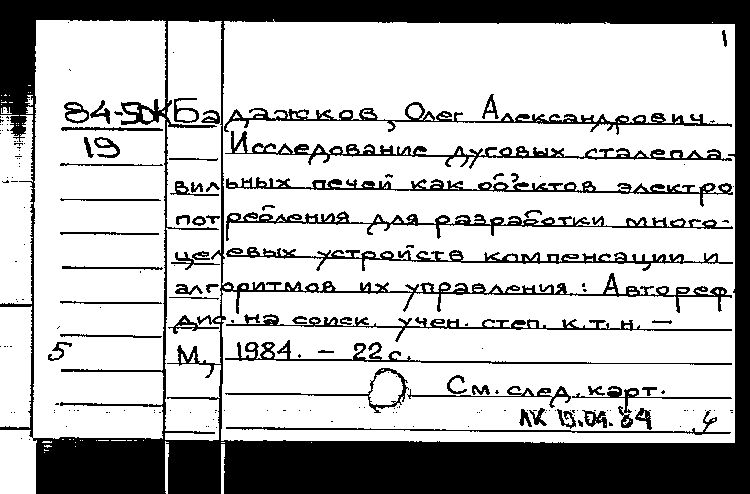 1
84-5DK Бадажков, Олег Александрович.
19 Исследование дуговых сталепла-
вильных печей как объектов электро
потребления для разработки много-
целевых устройств компенсации и
алгоритмов их управления: Автореф.
дис. на соиск. учен. степ. к.т.н. —
5 М., 1984. – 22 с.
См. след. карт.